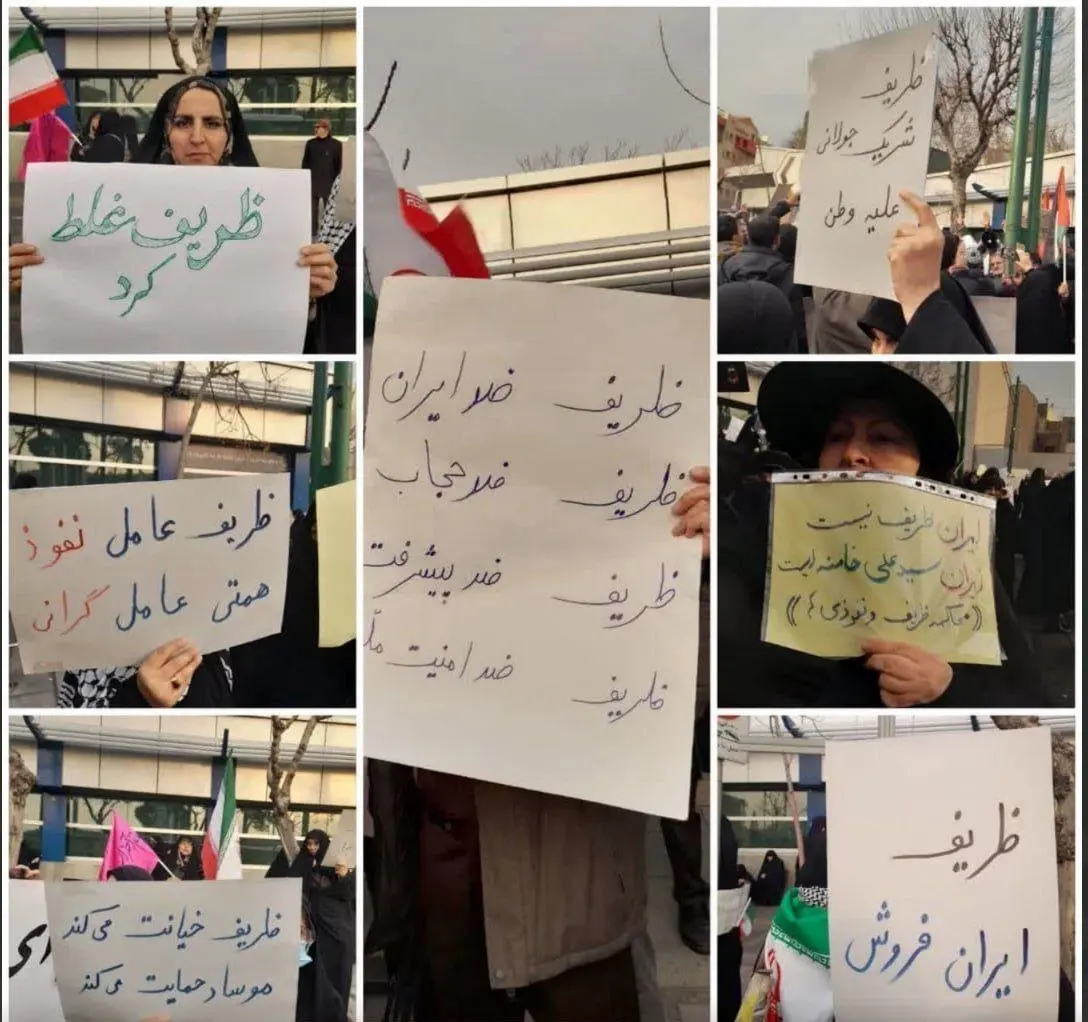 ظریف غلط
کرد
ظریف ضد ایران
ظریف ضد حجاب
ظریف ضد پیشرفت
ظریف ضد امنیت
ظریف
شریک جولانی
علیه وطن
ظریف عامل نفوذ
همتی عامل گرانی
ایران ظریف نیست
ایران سیدعلی خامنه ایست
((محاکمه ظریف و نفوذی ها))
ظریف خیانت می کند
موساد حمایت می کند
ظریف
ایران فروش